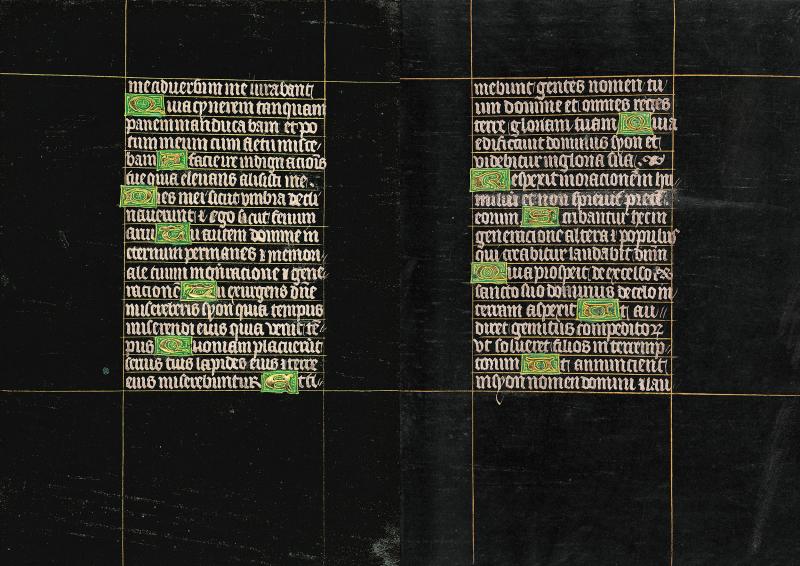 me adversum me iurabant
Quia cynerem tanquam
panem manducabam et po
tum meum cum fletu misce
bam A facie ire indignacionis
tue quia elevans alisisti me
Dies mei sicut umbra decli
naverunt et ego sicut fenum
arui Tu autem domine in
eternum permanes et memori
ale tuum in generacione et gene
racionem Tu exurgens dne
misereberis syon quia tempus
miserendi eius quia venit te
pus Quoniam placuerunt
servis tuis lapides eius et terre
eius miserebuntur Et ti
mebunt gentes nomen tu
um domine et omnes reges
terre gloriam tuam Quia
edificavit dominus syon et
videbitur in gloria sua
Respexit in oracionem hu
milium et non sprevit prece
eorum Scribantur hec in
generacione altera et populus
qui creabitur laudabit dnm
Quia prospexit de excelso
sancto suo dominus de celo in
terram aspexit Ut au
diret gemitus compeditor
ut solveret filios interemp
torum Ut annuncient
in syon nomen domini et lau